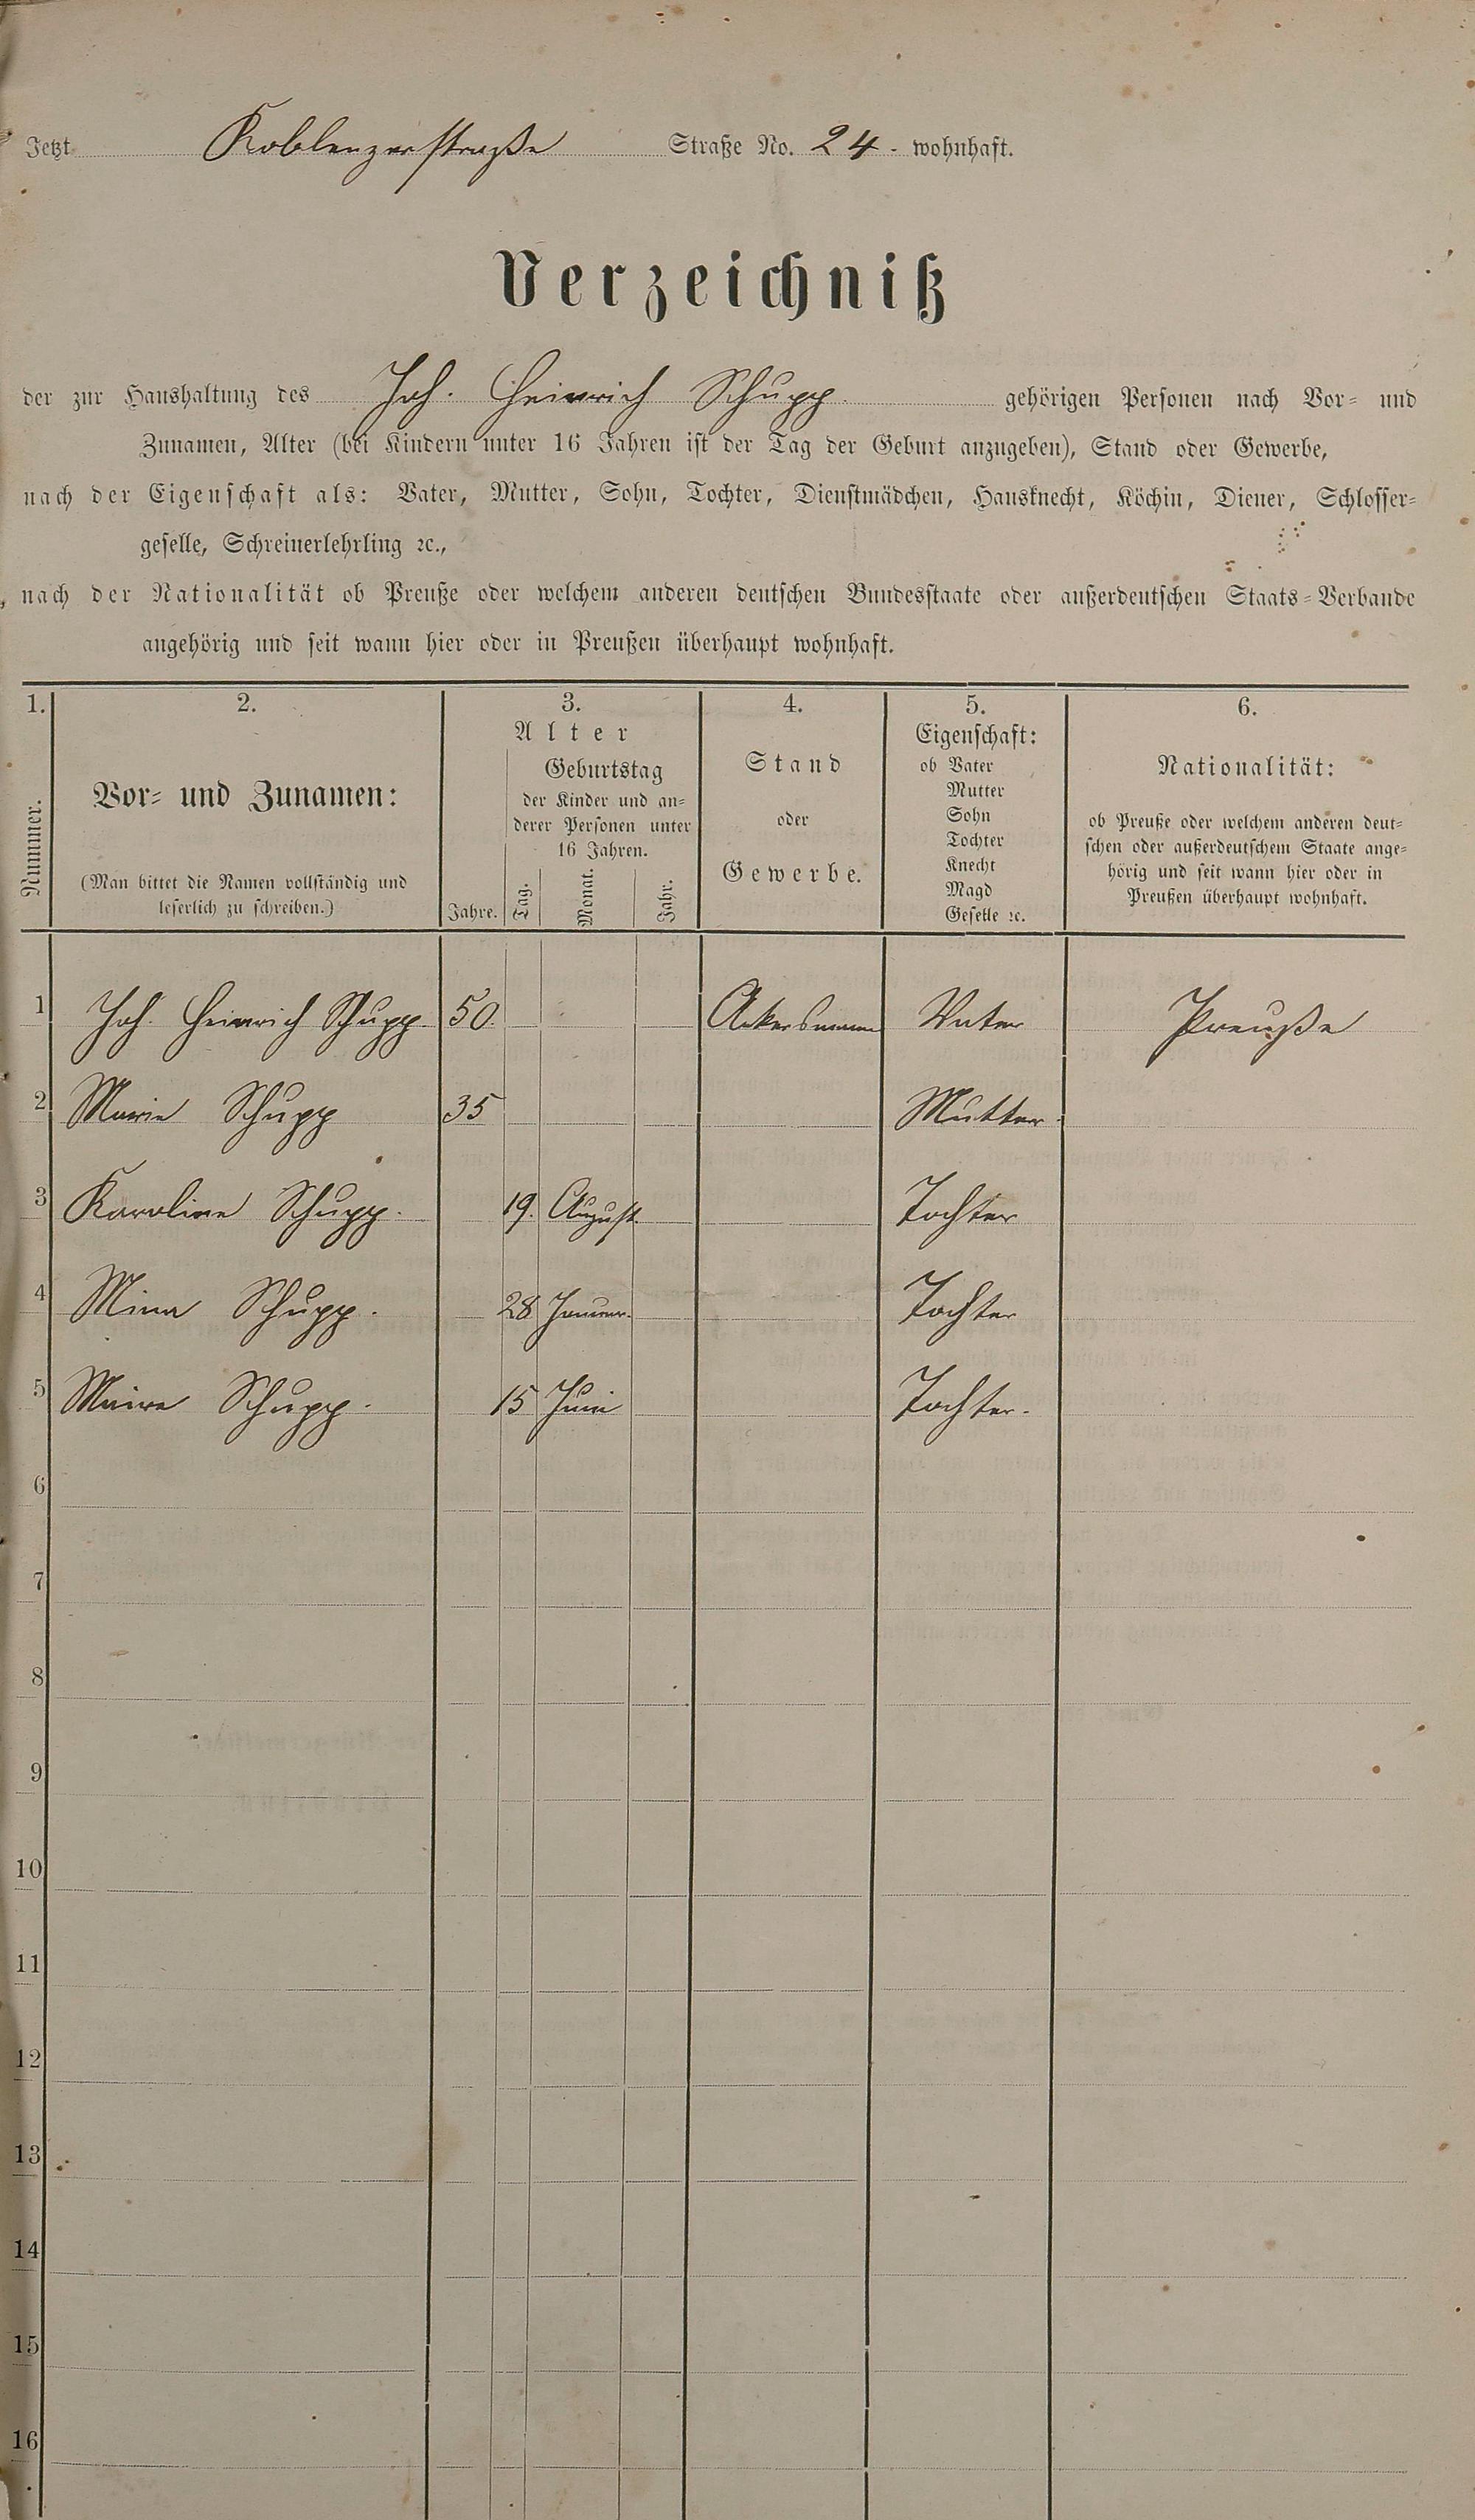 Jetzt Koblenzerstraße Straße No. 24. wohnhaft.
Verzeichniß
der zur Haushaltung des Joh. Heinrich Schupp gehörigen Personen nach Vor- und
Zunamen, Alter (bei Kindern unter 16 Jahren ist der Tag der Geburt anzugeben), Stand oder Gewerbe,
nach der Eigenschaft als: Vater, Mutter, Sohn, Tochter, Dienstmädchen, Hausknecht, Köchin, Diener, Schlosser-
geselle, Schreinerlehrling ꝛc.,
nach der Nationalität ob Preuße oder welchem anderen deutschen Bundesstaate oder außerdeutschen Staats-Verbande
angehörig und seit wann hier oder in Preußen überhaupt wohnhaft.
1. 2. 3. 4. 5. 6.
Nummer.
Vor- und Zunamen:
(Man bittet die Namen vollständig und
leserlich zu schreiben.)
Alter
Geburtstag
der Kinder und an-
derer Personen unter
16 Jahren.
Jahre. Tag. Monat. Jahr.
Stand
oder
Gewerbe.
Eigenschaft:
ob Vater
Mutter
Sohn
Tochter
Knecht
Magd
Geselle ꝛc.
Nationalität:
ob Preuße oder welchem anderen deut-
schen oder außerdeutschem Staate ange-
hörig und seit wann hier oder in
Preußen überhaupt wohnhaft.
1 Joh. Heinrich Schupp 50. Ackersmann Vater Preuße
2 Marie Schupp 35 Mutter.
3 Karoline Schupp. 19. August. Tochter
4 Mina Schupp. 28 Januar. Tochter
5 Schupp. 15 Juni Tochter.
6
7
8
9
10
11
12
13
14
15
16